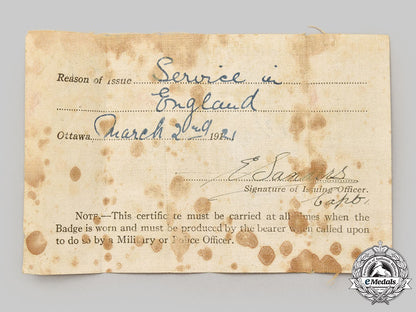 Reason of Issue Service in
England
Ottawa March 2nd 1921
E
Signature of Issuing Officer.
Capt.
NOTE.—This certificate must be carried at all times when the
Badge is worn and must be produced by the bearer when called upon
to do so by a Military or Police Officer.
eMedals